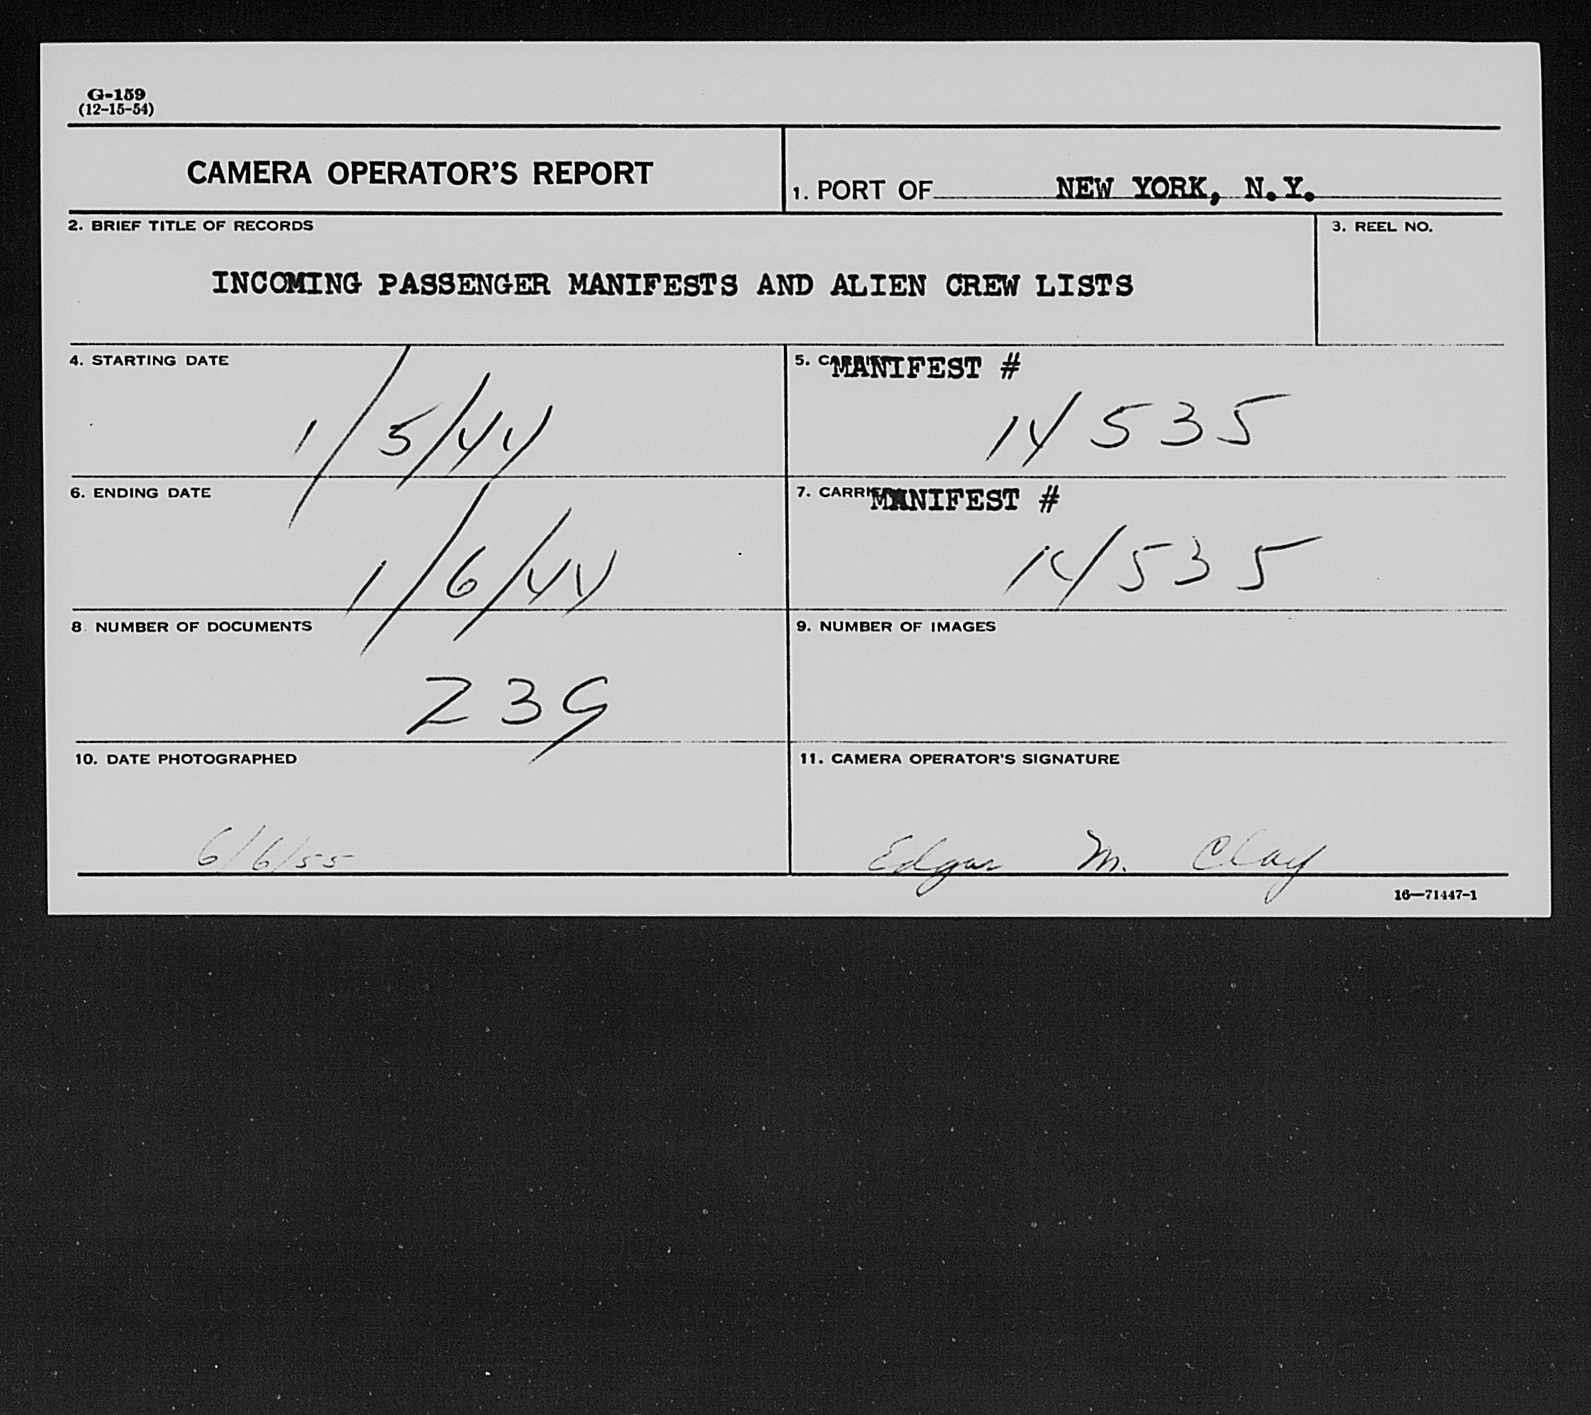 G-159
(12-15-54)
CAMERA OPERATOR'S REPORT
1. PORT OF NEW YORK, N.Y.
2. BRIEF TITLE OF RECORDS
3. REEL NO.
INCOMING PASSENGER MANIFESTS AND ALIEN CREW LISTS
4. STARTING DATE
5. MANIFEST #
1/5/44
14535
6. ENDING DATE
7. MANIFEST #
1/6/44
14535
8. NUMBER OF DOCUMENTS
9. NUMBER OF IMAGES
239
10. DATE PHOTOGRAPHED
11. CAMERA OPERATOR'S SIGNATURE
6/6/55
Edgar M. Clay
16-71447-1